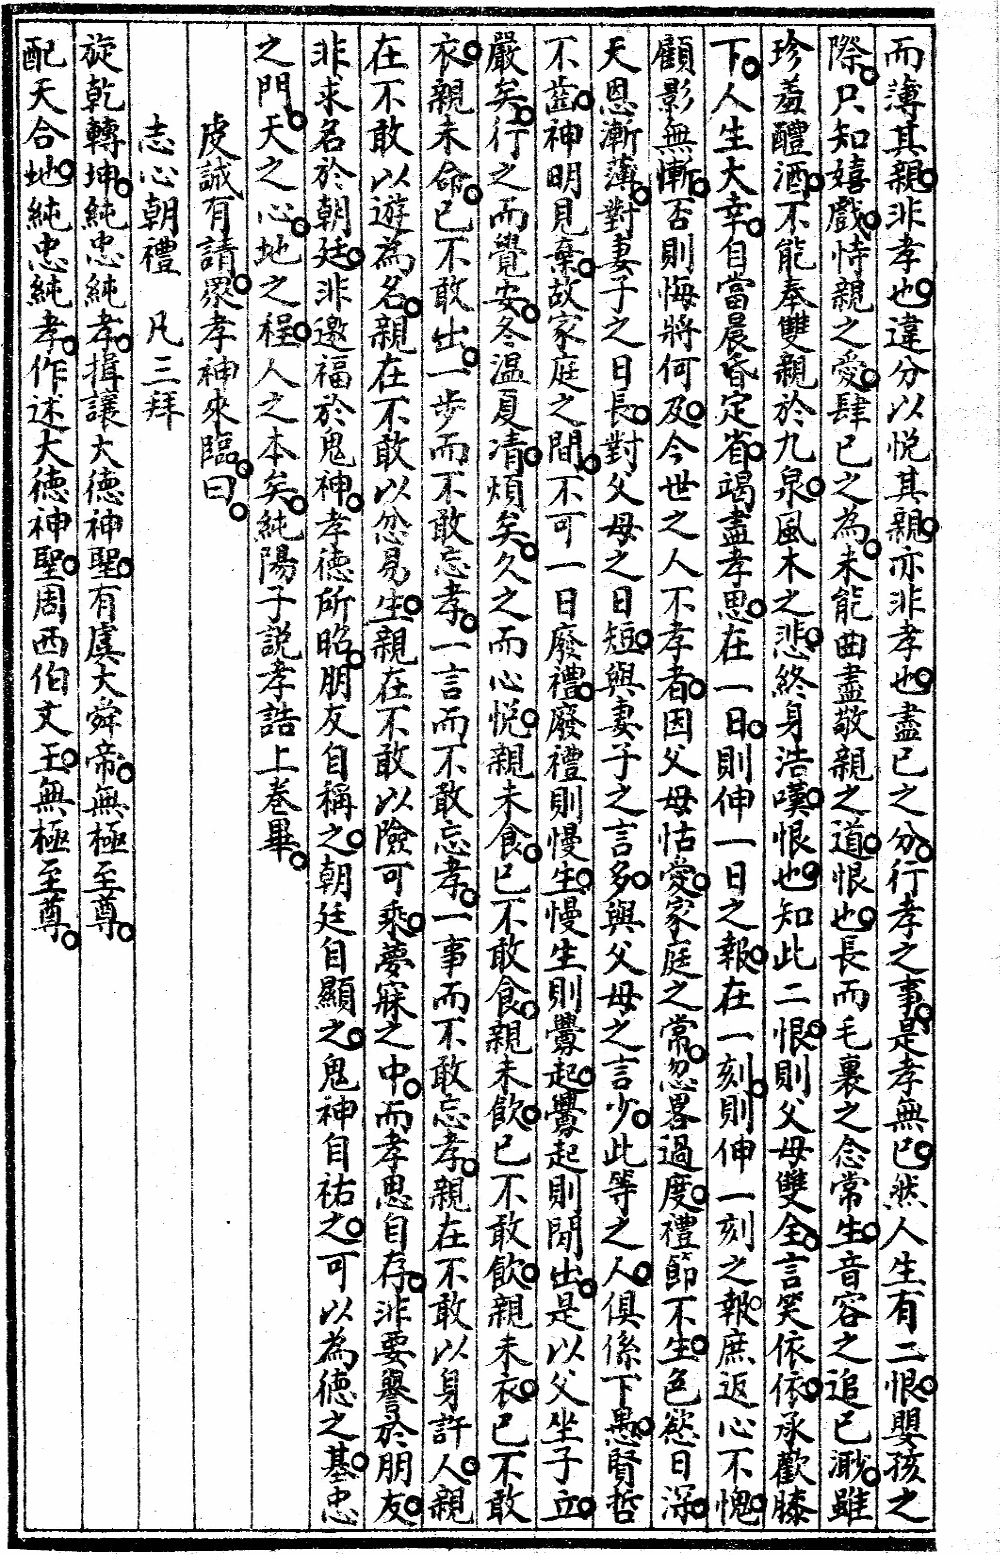 而薄其親。非孝也。違分以悅其親。亦非孝也。盡已之分。行孝之事。是孝無已。然人生有二恨。嬰孩之
際。只知嬉戲。恃親之愛。肆已之為。未能曲盡敬親之道。恨也。長而毛裏之念常生。音容之追已渺。雖
珍羞醴酒。不能奉雙親於九泉。風木之悲。終身浩嘆。恨也。知此二恨。則父母雙全。言笑依依。承歡膝
下。人生大幸。自當晨昏定省。竭盡孝思。在一日。則伸一日之報。在一刻。則伸一刻之報。庶返心不愧。
顧影無慚。否則悔將何及。今世之人不孝者。因父母怙愛。家庭之常。忽畧過度。禮節不生。色慾日深。
天恩漸薄。對妻子之日長。對父母之日短。與妻子之言多。與父母之言少。此等之人。俱係下愚。賢哲
不齒。神明見棄。故家庭之間。不可一日廢禮。廢禮則慢生。慢生則釁起。釁起則鬩出。是以父坐子立。
嚴矣。行之而覺安。冬温夏凊。煩矣。久之而心悅。親未食。已不敢食。親未飲。已不敢飲。親未衣。已不敢
衣。親未命。已不敢出。一步而不敢忘孝。一言而不敢忘孝。一事而不敢忘孝。親在不敢以身許人。親
在不敢以遊為名。親在不敢以忽易生。親在不敢以險可乘。夢寐之中。而孝思自存。非要譽於朋友。
非求名於朝廷。非邀福於鬼神。孝德所昭。朋友自稱之。朝廷自顯之。鬼神自祐之。可以為德之基。忠
之門。天之心。地之程。人之本矣。純陽子說孝誥上卷畢。
虔誠有請。眾孝神來臨。曰。
志心朝禮　凡三拜
旋乾轉坤。純忠純孝。揖讓大德神聖。有虞大舜帝。無極至尊。
配天合地。純忠純孝。作述大德神聖。周西伯文王。無極至尊。